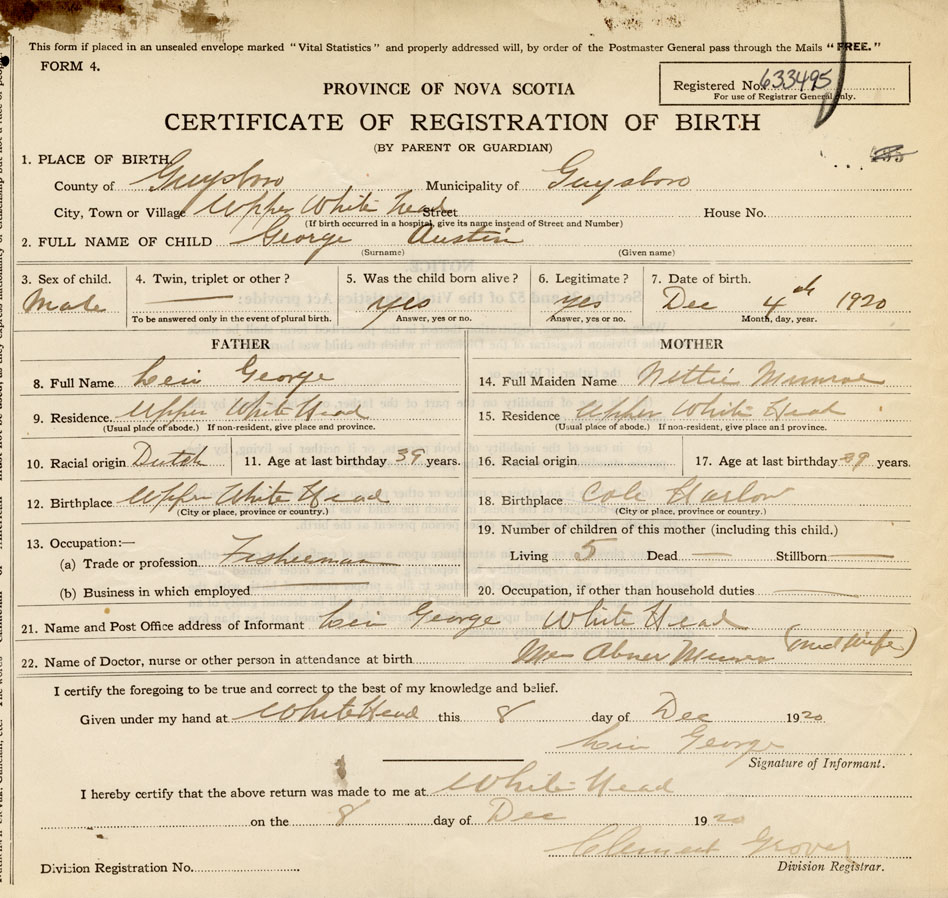 This form if placed in an unsealed envelope marked "Vital Statistics" and properly addressed will, by order of the Postmaster General pass through the Mails "FREE."
FORM 4.
Registered No. 633495
For use of Registrar General only.
PROVINCE OF NOVA SCOTIA
CERTIFICATE OF REGISTRATION OF BIRTH
(BY PARENT OR GUARDIAN)
1. PLACE OF BIRTH
County of Guysboro Municipality of Guysboro
City, Town or Village Upper White head Street House No.
(If birth occurred in a hospital, give its name instead of Street and Number)
2. FULL NAME OF CHILD George Austin
(Surname) (Given name)
3. Sex of child. 4. Twin, triplet or other? 5. Was the child born alive? 6. Legitimate? 7. Date of birth.
Male yes yes Dec 4th 1920
To be answered only in the event of plural birth. Answer, yes or no. Answer, yes or no. Month, day, year.
FATHER MOTHER
8. Full Name Levi George 14. Full Maiden Name Nettie Munroe
9. Residence Upper White Head 15. Residence Upper White Head
(Usual place of abode.) If non-resident, give place and province. (Usual place of abode.) If non-resident, give place and province.
10. Racial origin Dutch 11. Age at last birthday 39 years. 16. Racial origin 17. Age at last birthday 39 years.
12. Birthplace Upper White Head 18. Birthplace Cole Harlow
(City or place, province or country.) (City or place, province or country.)
13. Occupation:— 19. Number of children of this mother (including this child.)
(a) Trade or profession Fisherman Living 5 Dead — Stillborn —
(b) Business in which employed 20. Occupation, if other than household duties
21. Name and Post Office address of Informant Levi George White Head
22. Name of Doctor, nurse or other person in attendance at birth Mrs Abner Munro (mid Wife)
I certify the foregoing to be true and correct to the best of my knowledge and belief.
Given under my hand at White Head this 8 day of Dec 1920
Levi George
Signature of Informant.
I hereby certify that the above return was made to me at White Head
on the 8 day of Dec 1920
Clement Grover
Division Registration No. Division Registrar.